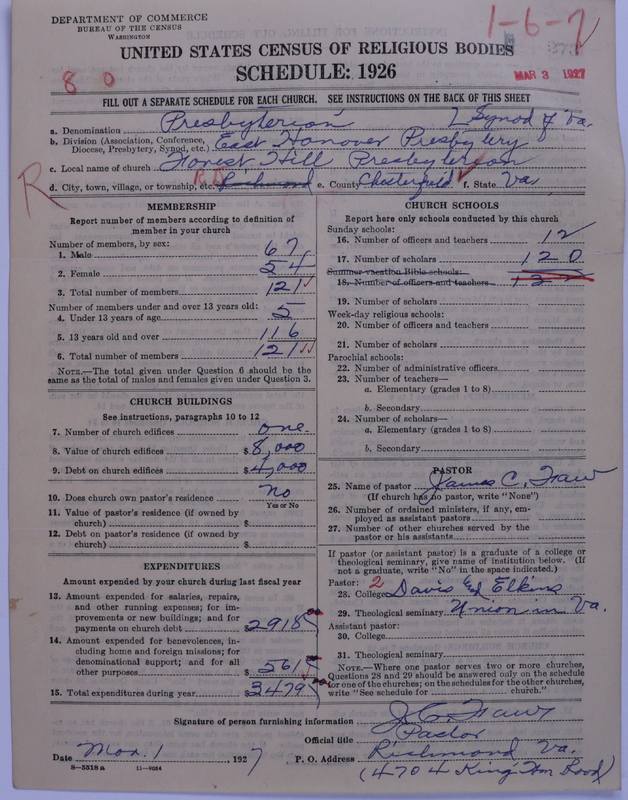 DEPARTMENT OF COMMERCE
BUREAU OF THE CENSUS
WASHINGTON
1-6-2
UNITED STATES CENSUS OF RELIGIOUS BODIES
SCHEDULE: 1926
8 0
MAR 3 1927
FILL OUT A SEPARATE SCHEDULE FOR EACH CHURCH. SEE INSTRUCTIONS ON THE BACK OF THIS SHEET
a. Denomination Presbyterian Synod of Va.
b. Division (Association, Conference, Diocese, Presbytery, Synod, etc.) East Hanover Presbytery
c. Local name of church Forest Hill Presbyterian
R
d. City, town, village, or township, etc. R.D. Richmond e. County Chesterfield f. State Va
MEMBERSHIP
Report number of members according to definition of
member in your church
Number of members, by sex:
1. Male 67
2. Female 54
3. Total number of members 121
Number of members under and over 13 years old:
4. Under 13 years of age 5
5. 13 years old and over 116
6. Total number of members 121
NOTE.—The total given under Question 6 should be the
same as the total of males and females given under Question 3.
CHURCH BUILDINGS
See instructions, paragraphs 10 to 12
7. Number of church edifices one
8. Value of church edifices $ 8,000
9. Debt on church edifices $ 4,000
10. Does church own pastor's residence no
Yes or No
11. Value of pastor's residence (if owned by
church) $
12. Debt on pastor's residence (if owned by
church) $
EXPENDITURES
Amount expended by your church during last fiscal year
13. Amount expended for salaries, repairs,
and other running expenses; for im-
provements or new buildings; and for
payments on church debt $ 2918 00
14. Amount expended for benevolences, in-
cluding home and foreign missions; for
denominational support; and for all
other purposes $ 561
15. Total expenditures during year $ 3479
CHURCH SCHOOLS
Report here only schools conducted by this church
Sunday schools:
16. Number of officers and teachers 12
17. Number of scholars 120
Summer vacation Bible schools:
18. Number of officers and teachers 132
19. Number of scholars
Week-day religious schools:
20. Number of officers and teachers
21. Number of scholars
Parochial schools:
22. Number of administrative officers
23. Number of teachers—
a. Elementary (grades 1 to 8)
b. Secondary
24. Number of scholars—
a. Elementary (grades 1 to 8)
b. Secondary
PASTOR
25. Name of pastor James C. Traw
(If church has no pastor, write "None")
26. Number of ordained ministers, if any, em-
ployed as assistant pastors
27. Number of other churches served by the
pastor or his assistants
If pastor (or assistant pastor) is a graduate of a college or
theological seminary, give name of institution below. (If
not a graduate, write "No" in the space indicated.)
Pastor: 2
28. College Davis Ed Elkins
29. Theological seminary Union in Va.
Assistant pastor:
30. College
31. Theological seminary
NOTE.—Where one pastor serves two or more churches,
Questions 28 and 29 should be answered only on the schedule
for one of the churches; on the schedules for the other churches,
write "See schedule for church."
Signature of person furnishing information J. C. Traw
Official title Pastor
Date Mar. 1, 1927 P. O. Address Richmond Va.
8—5318 a 11—9064
(4704 King Wm Road)